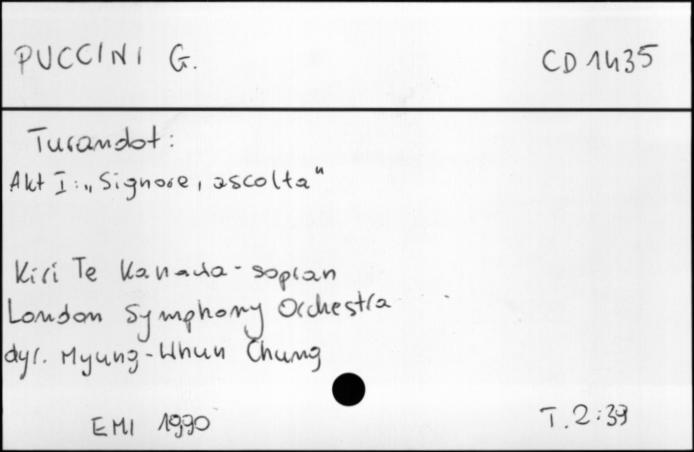 PUCCINI G. CD 1435
Turandot:
Akt I: „Signore, ascolta"
Kiri Te Kanawa - sopran
London Symphony Orchestra
dyr. Myung-Whun Chung
EMI 1990 T. 2:39